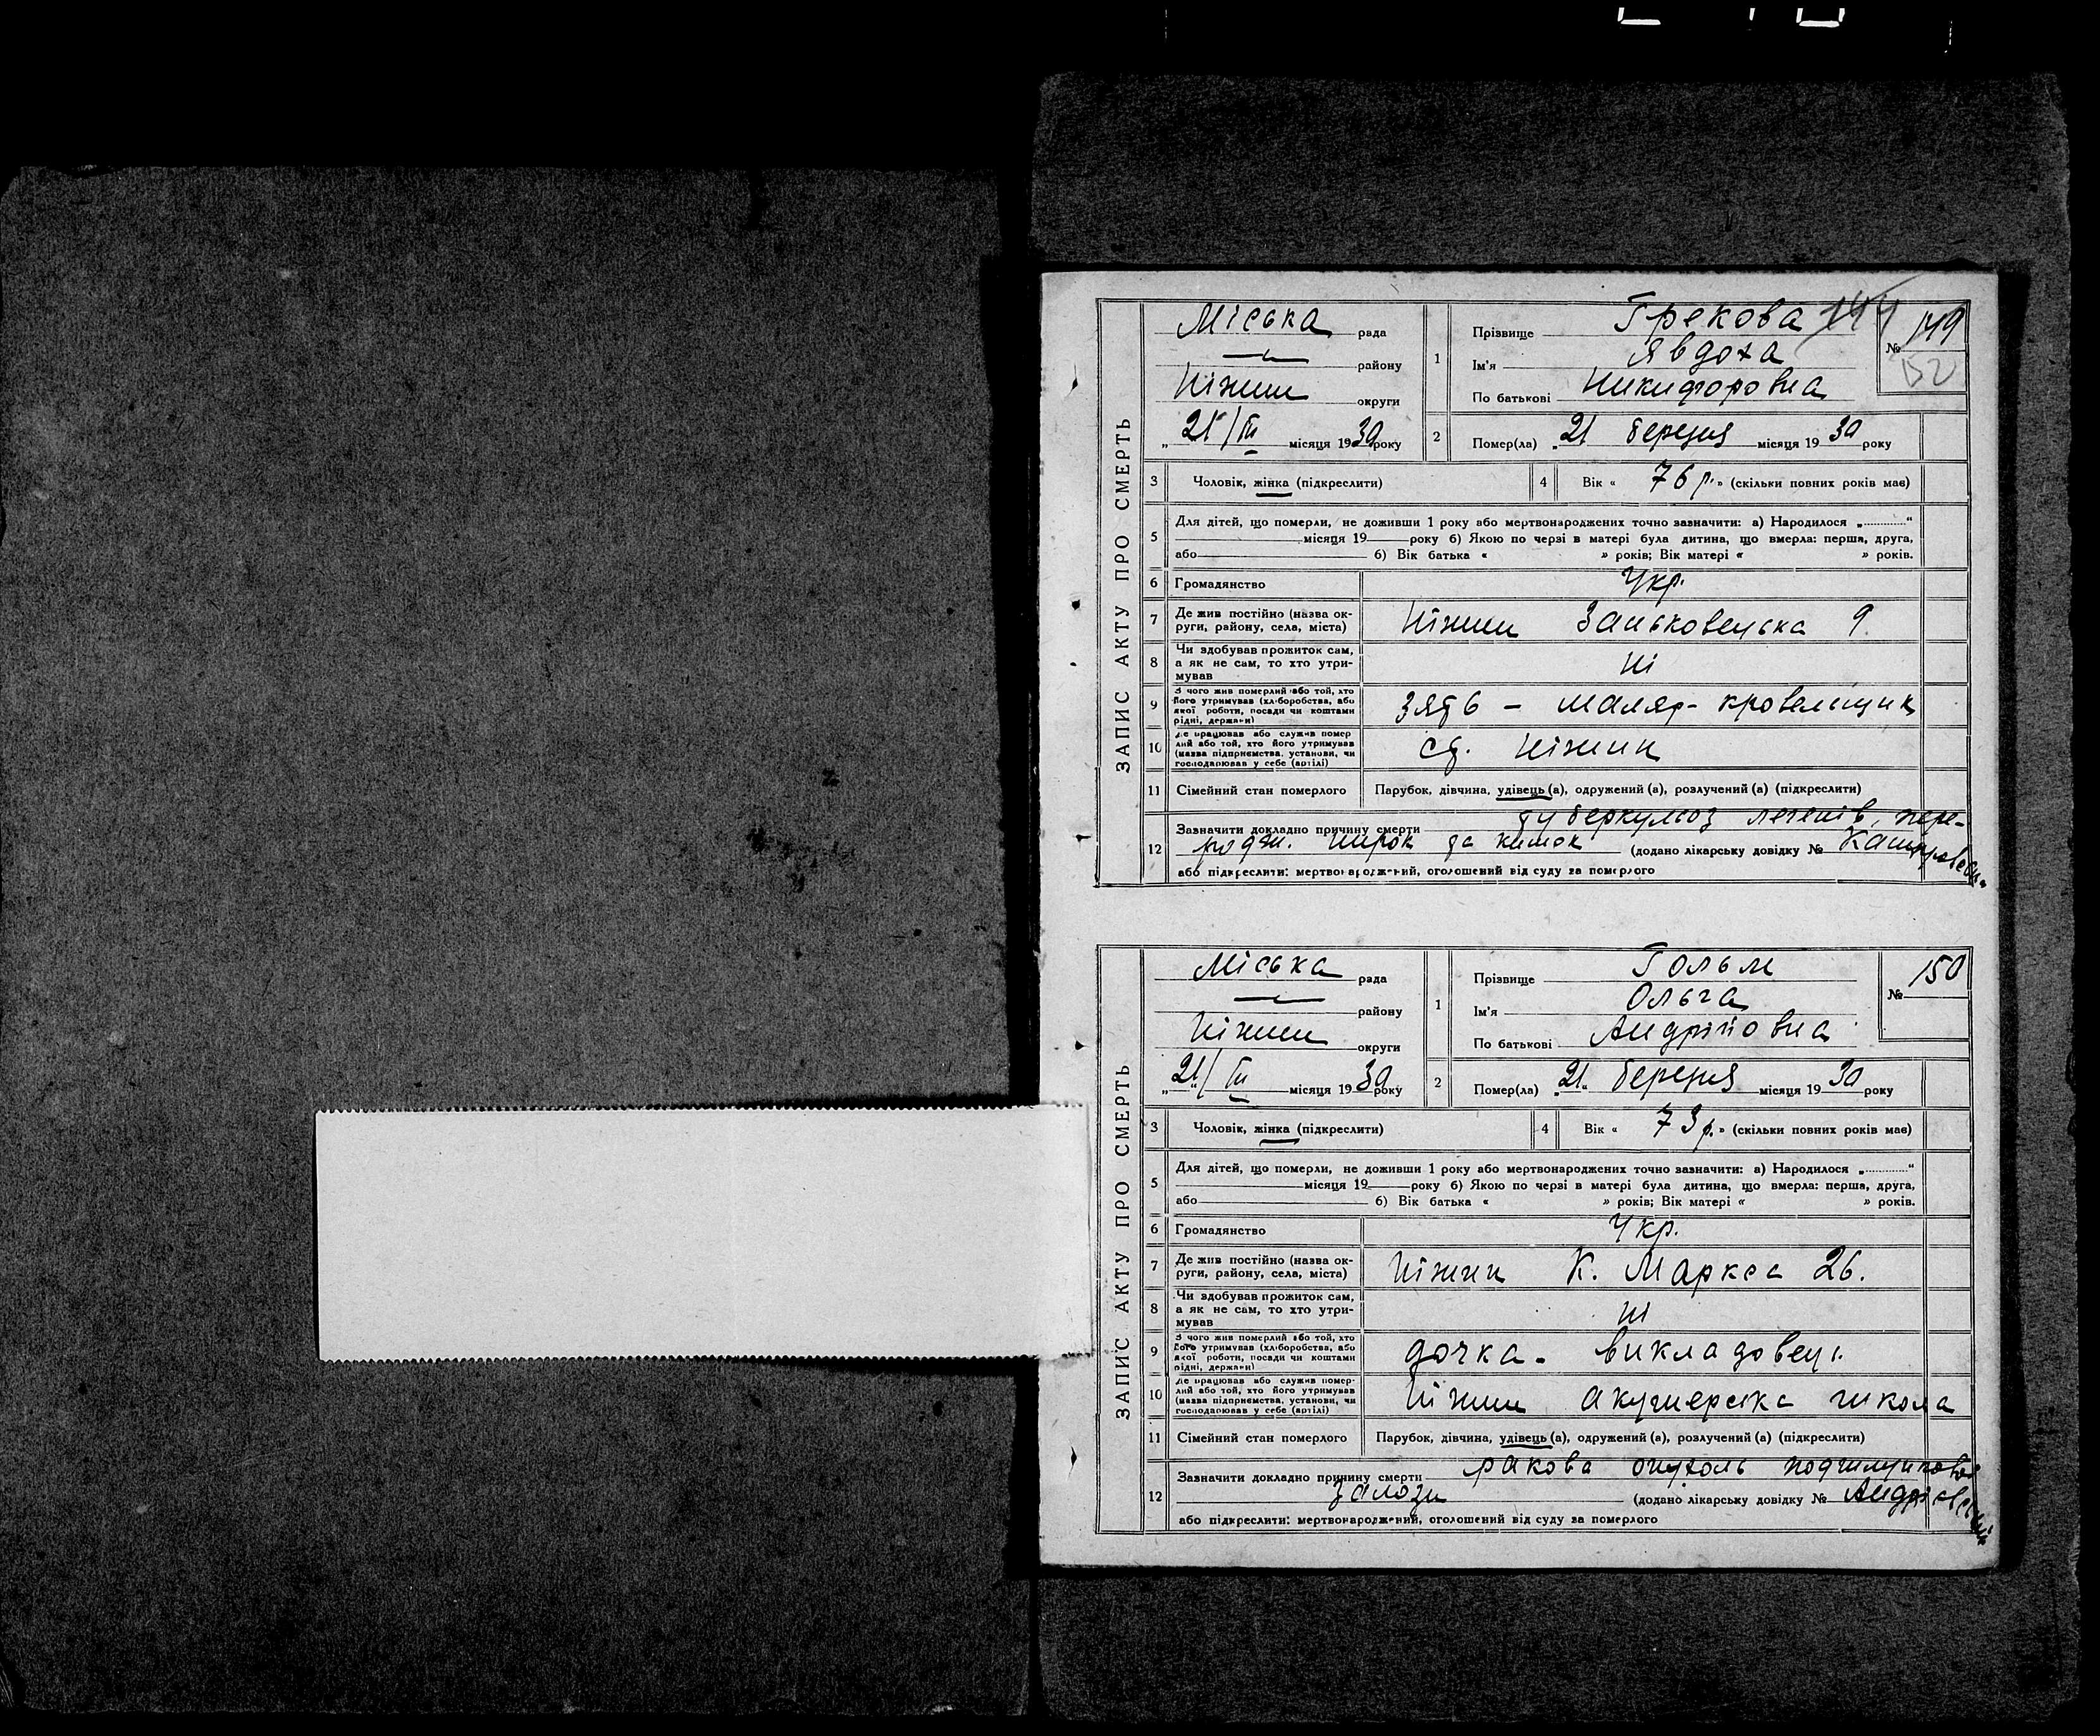 ЗАПИС АКТУ ПРО СМЕРТЬ
Міська рада
району
Ніжин округи
„ 21 / III місяця 1930 року
1 Прізвище Грекова 144
Ім'я Явдоха
По батькові Никифоровна
№ 149
152
2 Помер(ла) „ 21 березня місяця 19 30 року
3 Чоловік, жінка (підкреслити)
4 Вік « 76 р. » (скільки повних років має)
5 Для дітей, що померли, не доживши 1 року або мертвонароджених точно зазначити: а) Народилося „ “
місяця 19 року б) Якою по черзі в матері була дитина, що вмерла: перша, друга,
або б) Вік батька « » років; Вік матері « » років.
6 Громадянство Укр.
7 Де жив постійно (назва ок-
руги, району, села, міста) Ніжин Заньковецька 9
8 Чи здобував прожиток сам,
а як не сам, то хто утри-
мував Ні
9 З чого жив померлий або той, хто
його утримував (хліборобства, або
якої роботи, посади чи коштами
рідні, держави) зять – маляр- кровельщик
10 Де працював або служив помер
лий або той, хто його утримував
(назва підприємства, установи, чи
господарював у себе (артілі) ст. Ніжин
11 Сімейний стан померлого Парубок, дівчина, удівець (а), одружений (а), розлучений (а) (підкреслити)
12 Зазначити докладно причину смерти туберкульоз легенів, пере-
родж. нирок та кишок (додано лікарську довідку №
або підкреслити: мертвонароджений, оголошений від суду за померлого
ЗАПИС АКТУ ПРО СМЕРТЬ
Міська рада
району
Ніжин округи
„ 21 / III місяця 1930 року
1 Прізвище Гольм
Ім'я Ольга
По батькові Андріївна
№ 150
2 Помер(ла) „ 21 березня місяця 19 30 року
3 Чоловік, жінка (підкреслити)
4 Вік « 73 р. » (скільки повних років має)
5 Для дітей, що померли, не доживши 1 року або мертвонароджених точно зазначити: а) Народилося „ “
місяця 19 року б) Якою по черзі в матері була дитина, що вмерла: перша, друга,
або б) Вік батька « » років; Вік матері « » років.
6 Громадянство Укр.
7 Де жив постійно (назва ок-
руги, району, села, міста) Ніжин К. Маркса 26.
8 Чи здобував прожиток сам,
а як не сам, то хто утри-
мував Ні
9 З чого жив померлий або той, хто
його утримував (хліборобства, або
якої роботи, посади чи коштами
рідні, держави) дочка - викладовець
10 Де працював або служив помер-
лий або той, хто його утримував
(назва підприємства, установи, чи
господарював у себе (артілі) Ніжин акушерська школа
11 Сімейний стан померлого Парубок, дівчина, удівець (а), одружений (а), розлучений (а) (підкреслити)
12 Зазначити докладно причину смерти ракова опухоль
залози (додано лікарську довідку № Андрієвський
або підкреслити: мертвонароджений, оголошений від суду за померлого